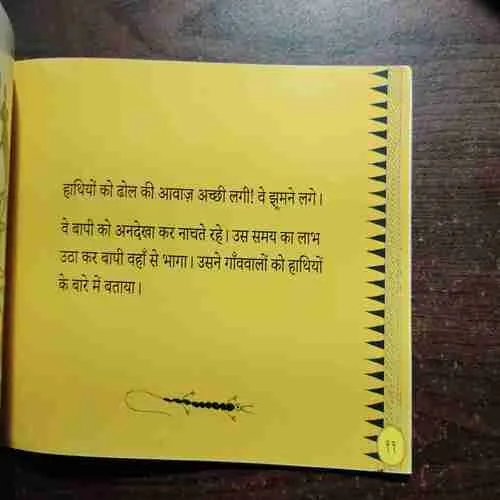 हाथियों को ढोल की आवाज़ अच्छी लगी! वे झूमने लगे।
वे बापी को अनदेखा कर नाचते रहे। उस समय का लाभ
उठा कर बापी वहाँ से भागा। उसने गाँववालों को हाथियों
के बारे में बताया।
११